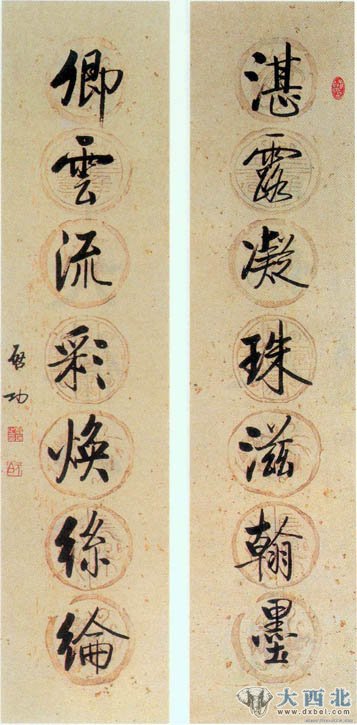 湛露凝珠滋翰墨
卿雲流彩煥絲綸
啓功
大西北
www.dxbei.com